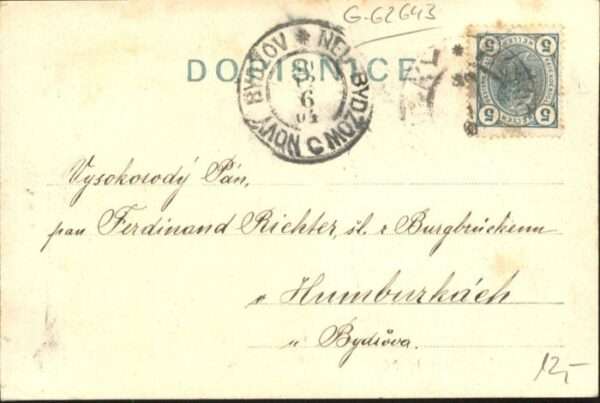 G-62643
DOPISNICE
NEU BYDŽOW
NOVÝ BYDŽOV
6
04
5 5
5 5
Vysokorodý Pán,
pan Ferdinand Richter, šl. z Burgbrückenu
v Humburkách
u Bydžova.
12,-